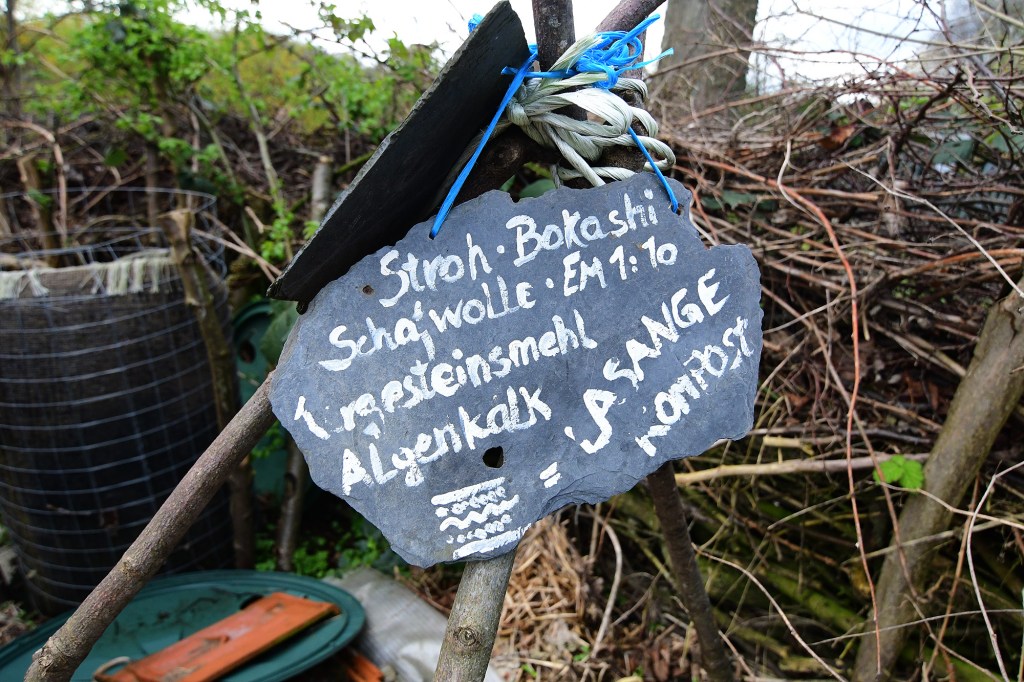 Stroh · Bokashi
Schafwolle · EM 1:10
Urgesteinsmehl
Algenkalk
= LASANGE
KOMPOST